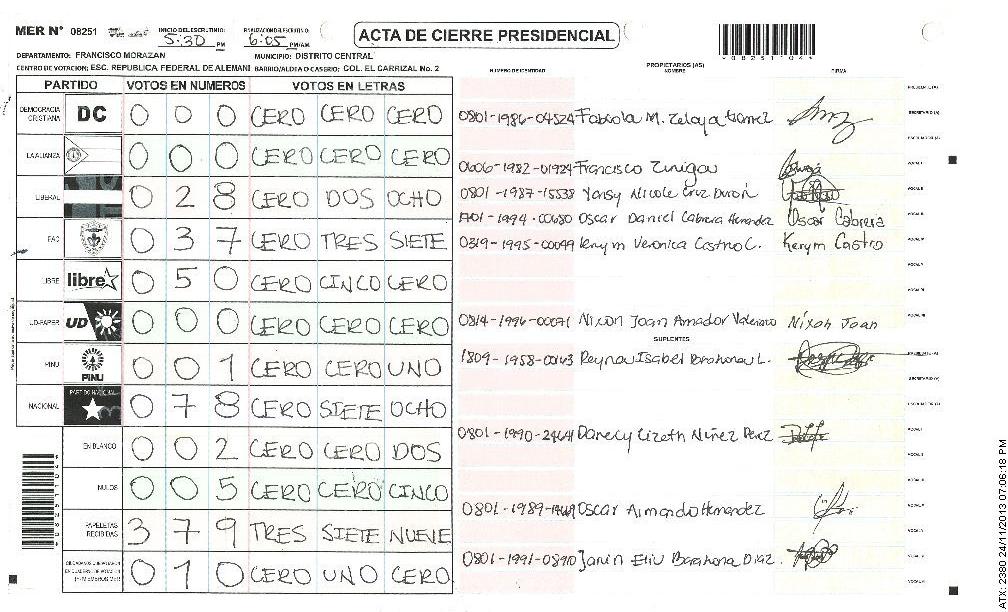 MER N° 08251 INICIO DEL ESCRUTINIO: 5:30 PM FINALIZACION DEL ESCRUTINIO: 6:05 PM/AM ACTA DE CIERRE PRESIDENCIAL
DEPARTAMENTO: FRANCISCO MORAZAN MUNICIPIO: DISTRITO CENTRAL
CENTRO DE VOTACION: ESC. REPUBLICA FEDERAL DE ALEMANI BARRIO/ALDEA O CASERIO: COL. EL CARRIZAL No. 2
NUMERO DE IDENTIDAD PROPIETARIOS (AS) NOMBRE FIRMA
PARTIDO VOTOS EN NUMEROS VOTOS EN LETRAS
DEMOCRACIA CRISTIANA DC 0 0 0 CERO CERO CERO
LA ALIANZA 0 0 0 CERO CERO CERO
LIBERAL 0 2 8 CERO DOS OCHO
PAC 0 3 7 CERO TRES SIETE
LIBRE libre 0 5 0 CERO CINCO CERO
UD-FAPER UD 0 0 0 CERO CERO CERO
PINU PINU 0 0 1 CERO CERO UNO
NACIONAL PARTIDO NACIONAL 0 7 8 CERO SIETE OCHO
EN BLANCO 0 0 2 CERO CERO DOS
NULOS 0 0 5 CERO CERO CINCO
PAPELETAS RECIBIDAS 3 7 9 TRES SIETE NUEVE
CIUDADANOS QUE VOTARON 0 1 0 CERO UNO CERO
0801-1986-04524 Fabiola M. Zelaya Gomez
0606-1982-01924 Francisco Zuniga
0801-1987-15538 Yensy Nicole Cruz Duron
1701-1994-00680 Oscar Daniel Cabrera Hernandez Oscar Cabrera
0319-1995-00099 Kerym Veronica Castro C. Kerym Castro
0814-1996-00071 Nixon Joan Amador Nixon Joan
SUPLENTES
1809-1958-00163 Reyna Isabel Barahona L.
0801-1990-24641 Danery Lizeth Nuñez Perez
0801-1989- Oscar Armando Hernandez
0801-1991-08970 Janin Eliu Barahona Diaz.
ATX: 2380 24/11/2013 07:06:18 PM